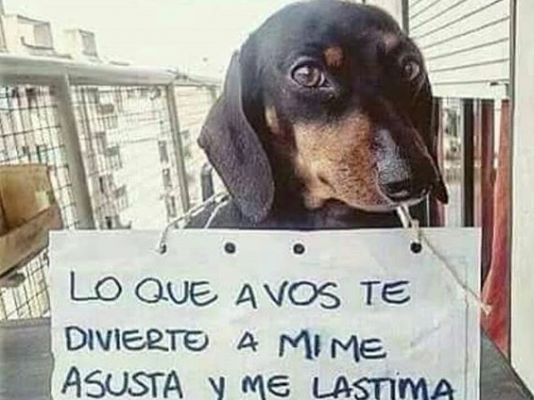 LO QUE A VOS TE
DIVIERTE A MI ME
ASUSTA Y ME LASTIMA